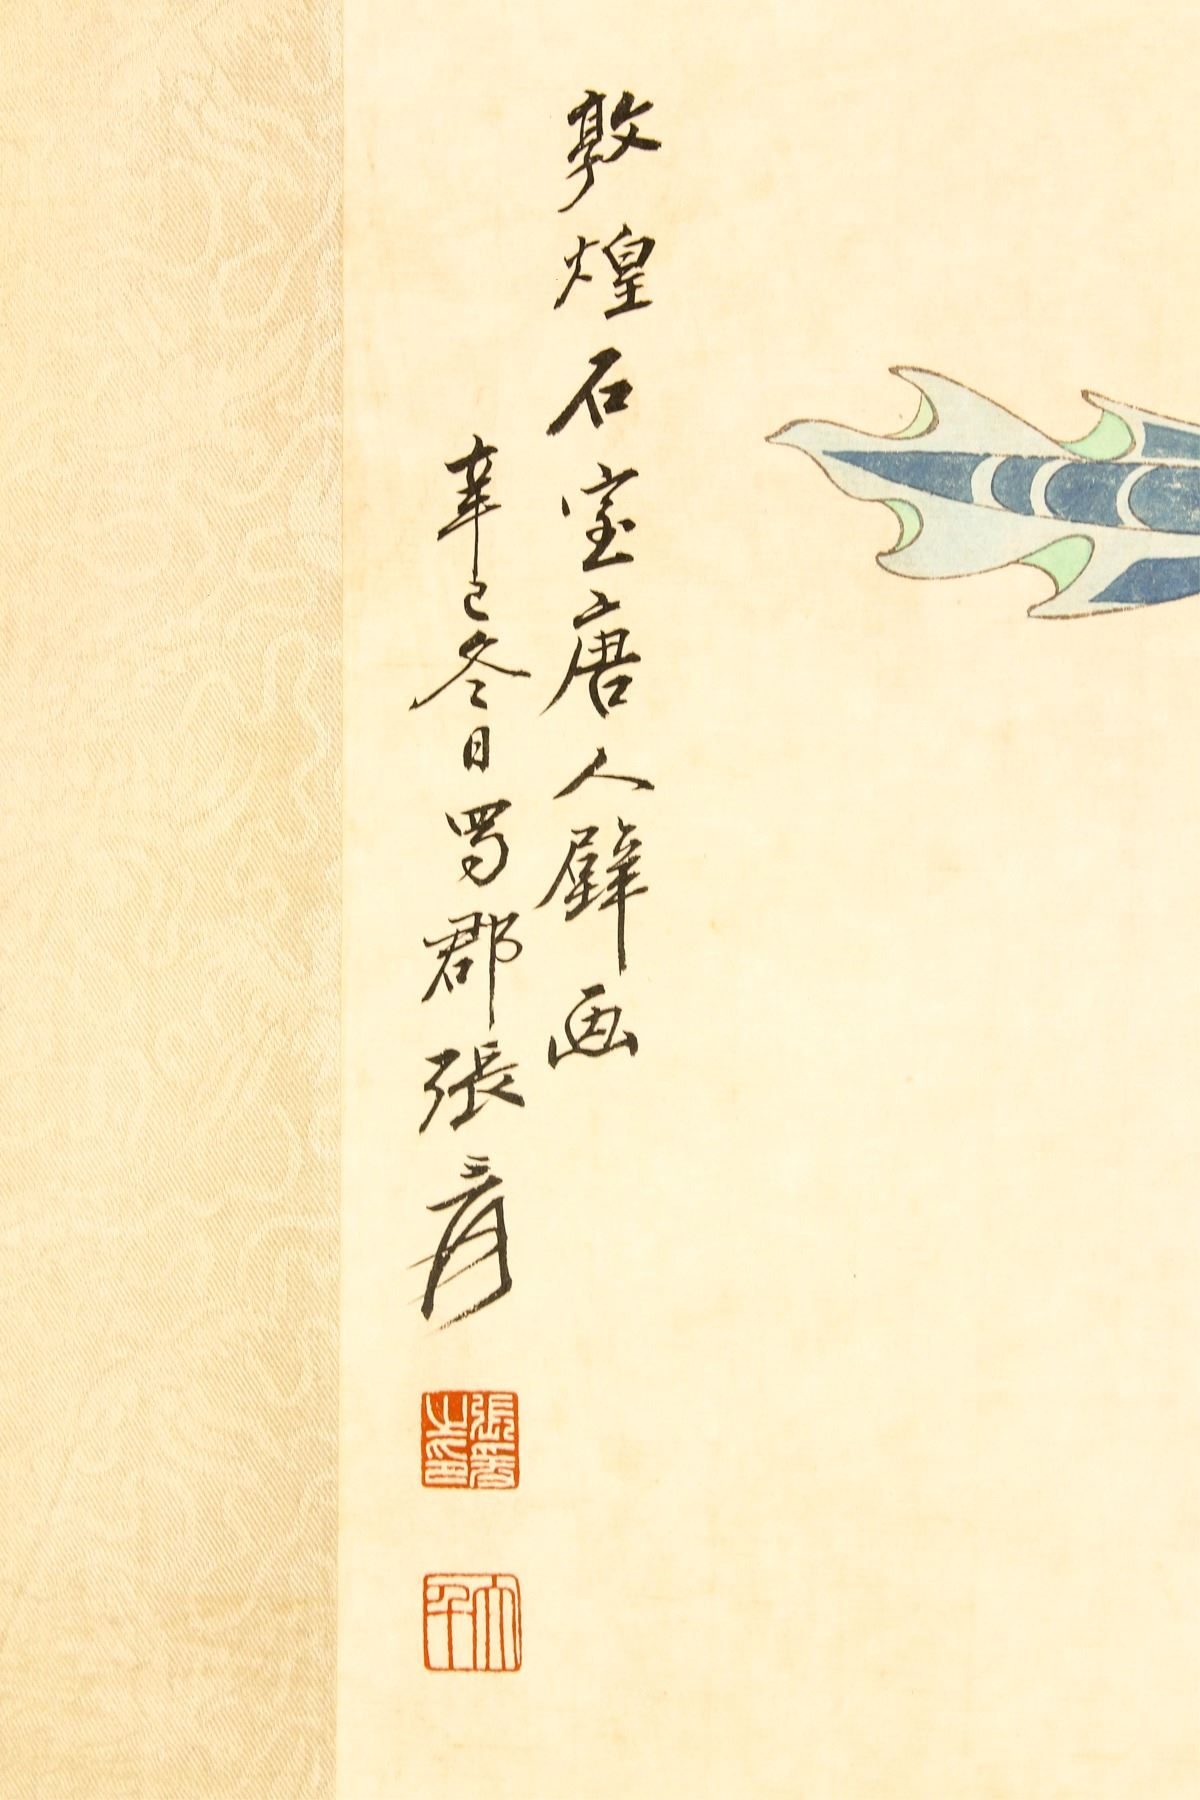 敦煌石室唐人壁画
辛巳冬日蜀郡張爰
張爰之印
大千